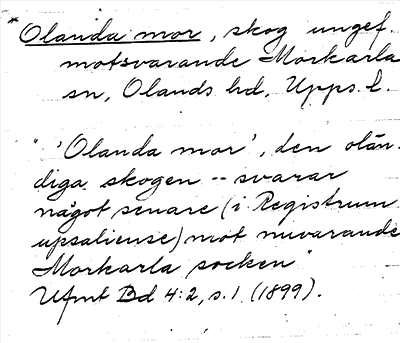 *Olanda mor, skog ungef.
motsvarande Morkarla
sn, Olands hd, Upps. l.
"'Olanda mor', den olän-
diga skogen -- svarar
något senare (i Registrum
upsaliense) mot nuvarande
Morkarla socken"
Ufmt Bd 4:2, s. 1 (1899).